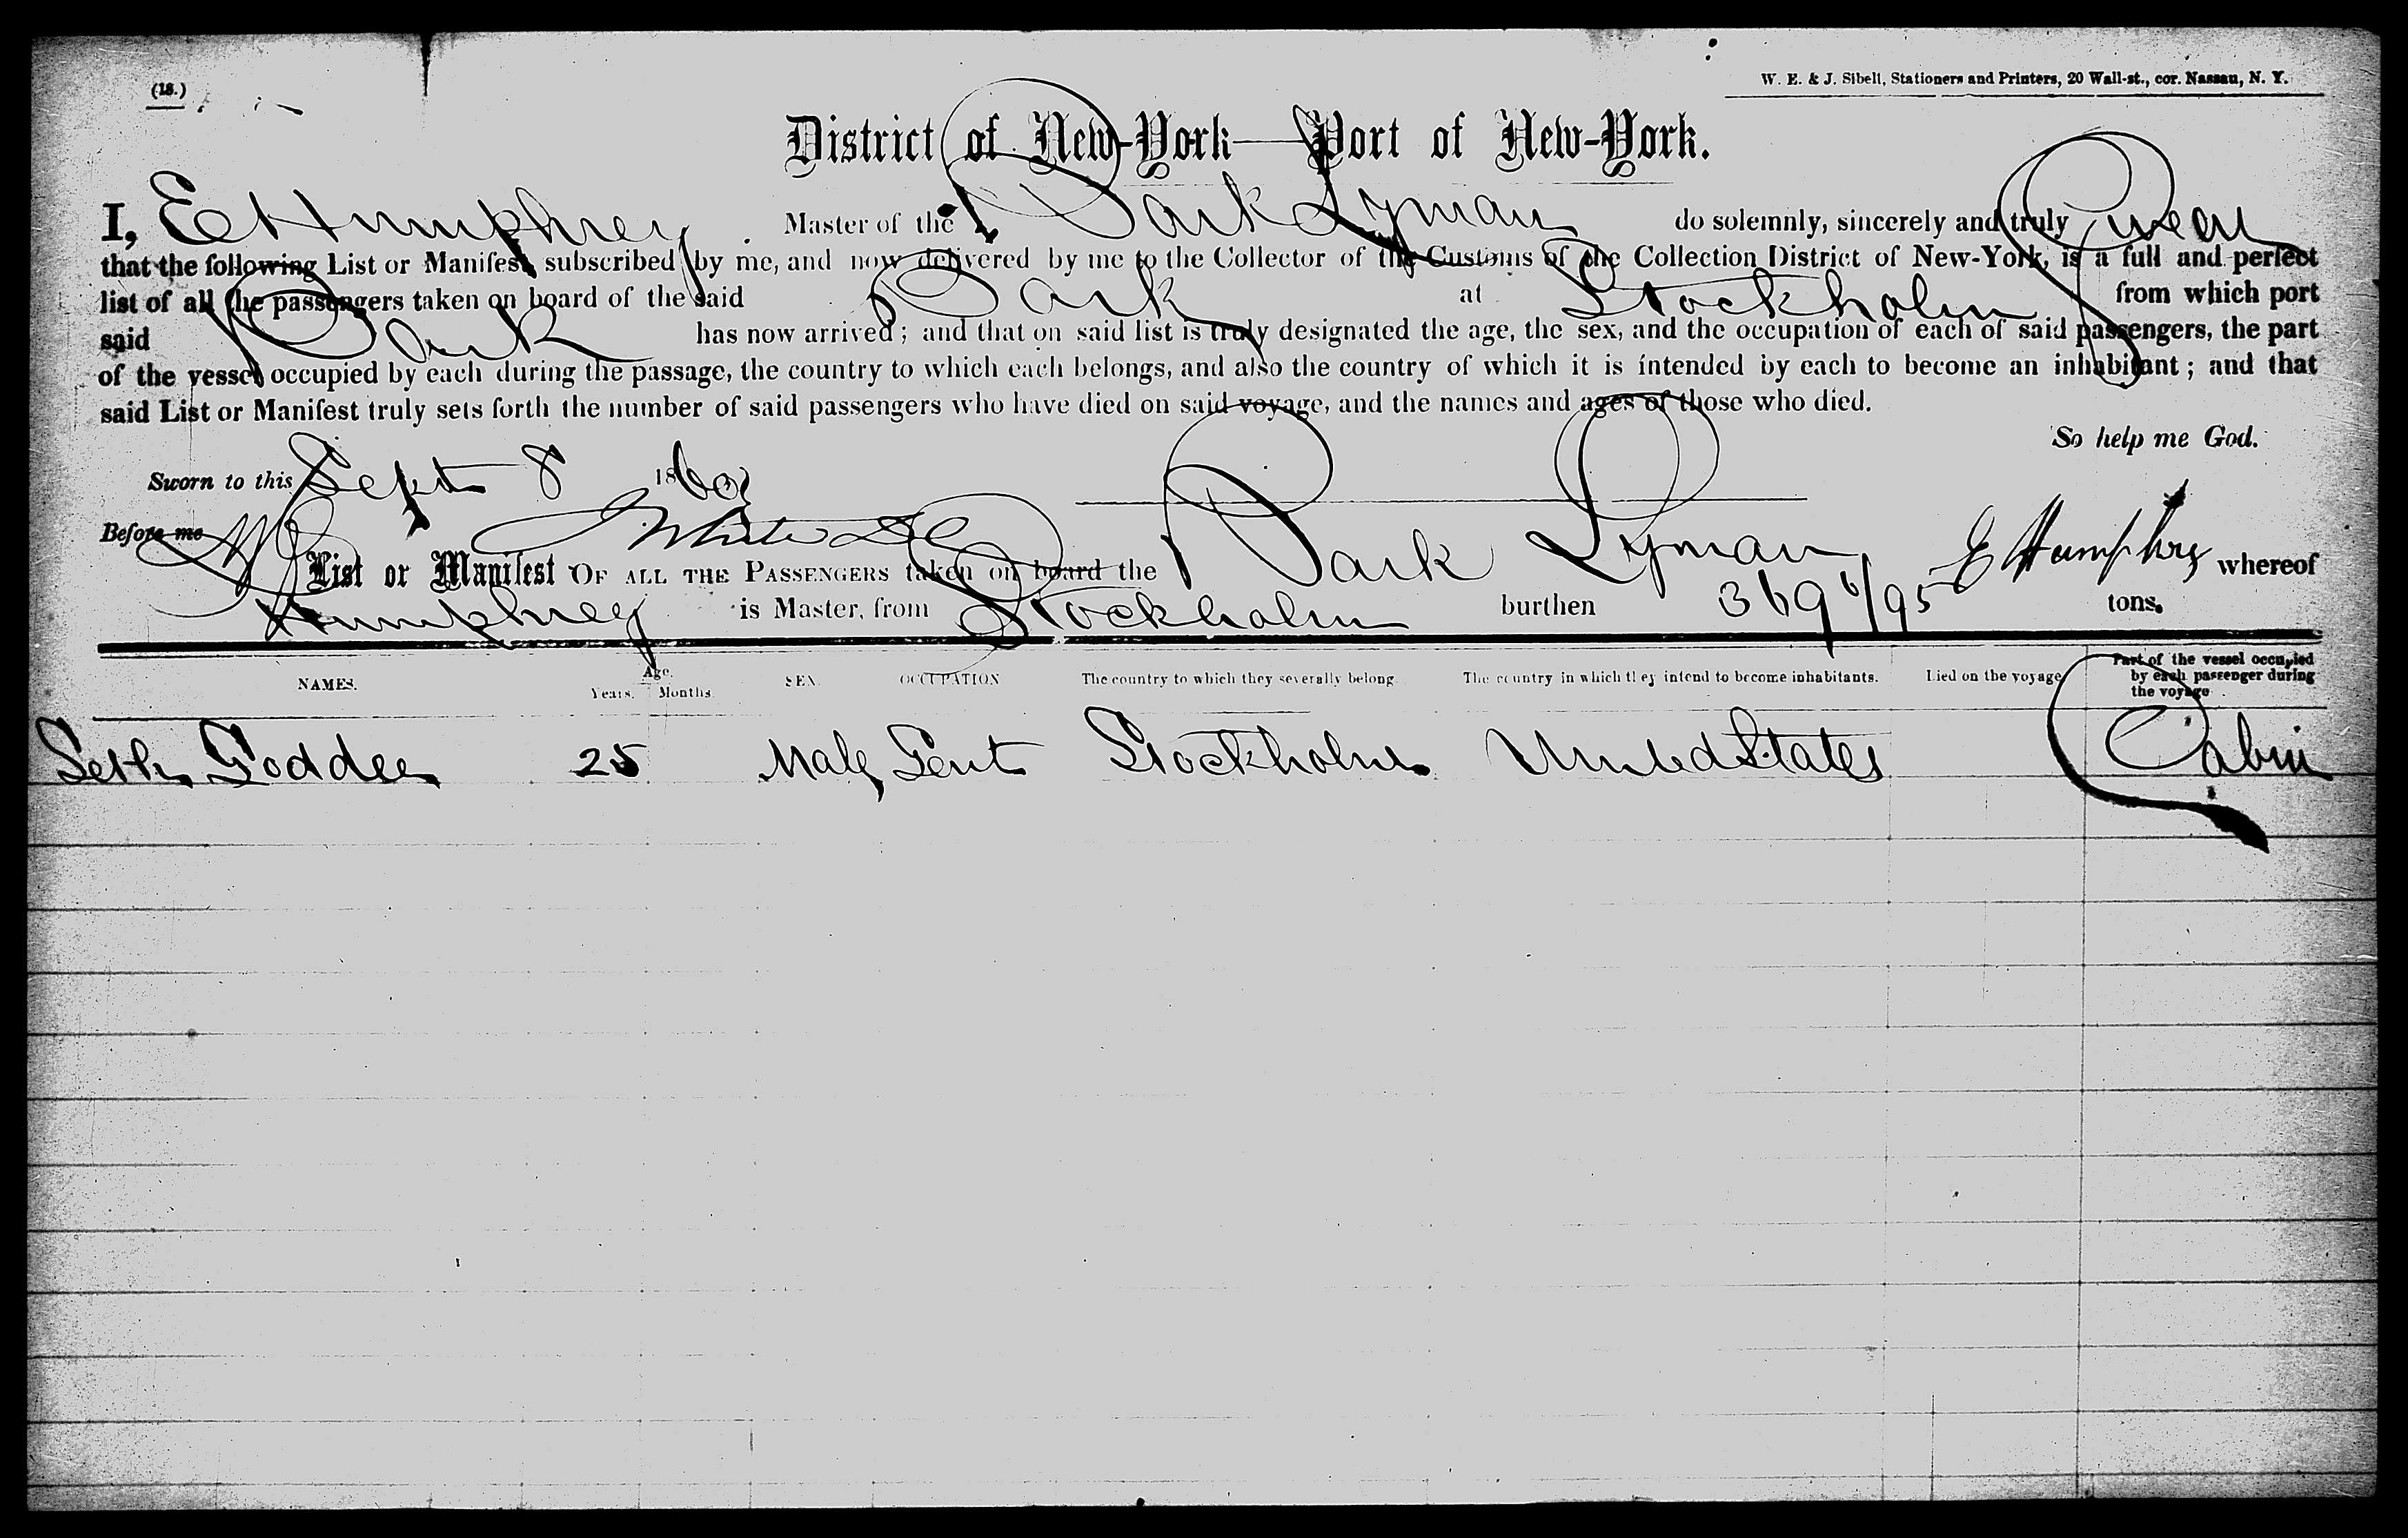 (18.)
W. E. & J. Sibell, Stationers and Printers, 20 Wall-st., cor. Nassau, N. Y.
District of New-York—Port of New-York.
I, E Humphrey Master of the Bark Lyman do solemnly, sincerely and truly Swear
that the following List or Manifest subscribed by me, and now delivered by me to the Collector of the Customs of the Collection District of New-York, is a full and perfect
list of all the passengers taken on board of the said Bark at Stockholm from which port
said Bark has now arrived; and that on said list is truly designated the age, the sex, and the occupation of each of said passengers, the part
of the vessel occupied by each during the passage, the country to which each belongs, and also the country of which it is intended by each to become an inhabitant; and that
said List or Manifest truly sets forth the number of said passengers who have died on said voyage, and the names and ages of those who died.
So help me God.
Sworn to this Sept 8 1860
Before me
E Humphrey
List or Manifest OF ALL THE PASSENGERS taken on board the Bark Lyman whereof
Humphrey is Master, from Stockholm burthen 369 6/95 tons.
NAMES. Age. Years. Months. SEX. OCCUPATION The country to which they severally belong. The country in which they intend to become inhabitants. Died on the voyage Part of the vessel occupied by each passenger during the voyage
Seth Godder 25 Male Gent Stockholm United States Cabin